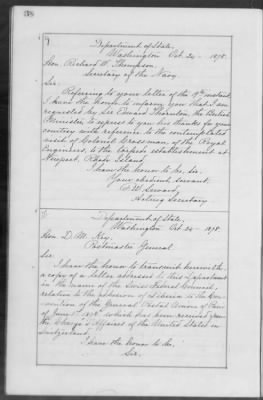 38
Department of State,
Washington Oct. 24 - 1878.
Hon. Richard W. Thompson,
Secretary of the Navy.
Sir:
Referring to your letter of the 9th instant,
I have the honor to inform you that I am
requested by Sir Edward Thornton, the British
Minister, to express to you his thanks for your
courtesy with reference to the contemplated
visit of Colonel Crossman, of the Royal
Engineers, to the torpedo establishment at
Newport, Rhode Island.
I have the honor to be, Sir,
Your obedient servant,
F. W. Seward,
Acting Secretary
Department of State,
Washington Oct. 24 - 1878.
Hon. D. M. Key,
Postmaster General.
Sir
I have the honor to transmit herewith
a copy of a letter addressed to this Department
in the name of the Swiss Federal Council,
relative to the adhesion of Liberia to the Con-
vention of the General Postal Union of Paris
of June 1st 1878 which has been received from
the Chargé d'Affaires of the United States in
Switzerland.
I have the honor to be,
Sir,